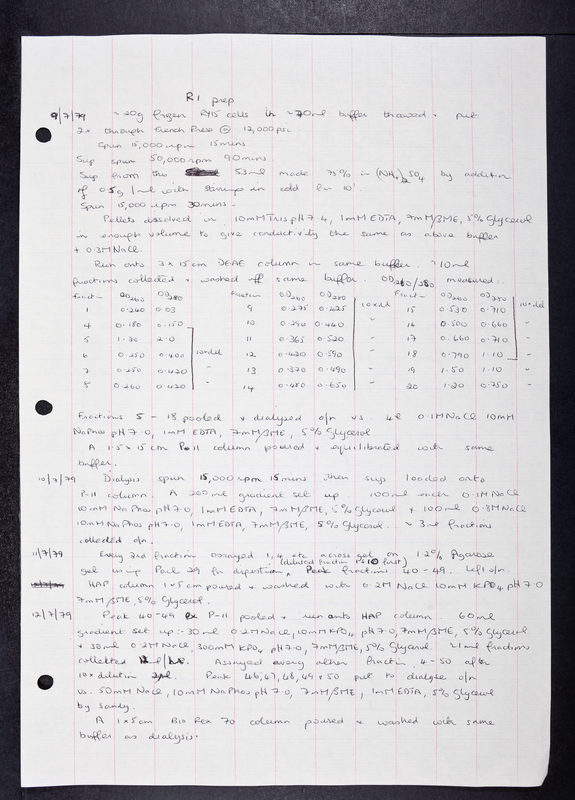 R1 prep
9/7/79 ~20g frozen RY13 cells in ~70ml buffer thawed + put
2x through French Press @ 12,000psi.
Spun 15,000 rpm 15mins
Sup spun 50,000 rpm 90mins.
Sup from this 53ml made 75% in (NH4)2SO4 by addition
of 0.5g/ml with stirring in cold for 10'.
Spun 15,000 rpm 30mins.
Pellets dissolved in 10mM Tris pH 7.4, 1mM EDTA, 7mM βME, 5% Glycerol
in enough volume to give conductivity the same as above buffer
+ 0.3M NaCl.
Run onto 3 x 15cm DEAE column in same buffer. ~10ml
fractions collected + washed off same buffer. OD260/280 measured.
Fraction OD260 OD280 Fraction OD260 OD280 Fract OD260 OD280
1 0.240 0.03 9 0.275 0.425 10xdil 15 0.530 0.710 10xdil
4 0.180 0.150 10 0.290 0.440 " 16 0.500 0.660
5 1.30 2.0 11 0.365 0.520 " 17 0.660 0.710
6 0.250 0.400 10xdil 12 0.420 0.590 " 18 0.790 1.10
7 0.250 0.420 " 13 0.370 0.490 " 19 1.50 1.10
8 0.260 0.420 " 14 0.480 0.650 " 20 1.20 0.750 "
Fractions 5 - 18 pooled + dialysed o/n vs. 4l 0.1M NaCl 10mM
NaPhos pH 7.0, 1mM EDTA, 7mM βME, 5% Glycerol
A 1.5 x 15cm P-11 column poured + equilibrated with same
buffer.
10/7/79 Dialysis spun 15,000 rpm 15mins then sup loaded onto
P-11 column. A 200ml gradient set up 100ml each 0.1M NaCl
10mM NaPhos pH 7.0, 1mM EDTA, 7mM βME, 5% Glycerol + 100ml 0.8M NaCl
10mM NaPhos pH 7.0, 1mM EDTA, 7mM βME, 5% Glycerol. ~3ml fractions
collected o/n.
11/7/79 Every 3rd fraction assayed 1,4 etc across gel on 1.2% Agarose
(diluted fraction 10 first)
gel using for digestion, Peak fractions 40-49. Left o/n.
HAP column 1x5cm poured + washed with 0.2M NaCl 10mM KPO4 pH 7.0
7mM βME, 5% Glycerol.
12/7/79 Peak 40-49 ex P-11 pooled + run onto HAP column 60ml
gradient set up:- 30ml 0.2M NaCl, 10mM KPO4 pH 7.0, 7mM βME, 5% Glycerol
+ 30ml 0.2M NaCl, 300mM KPO4 pH 7.0, 7mM βME, 5% Glycerol. ~1ml fractions
collected. Assayed every other fraction, 4-50 after
10x dilution. Peak 46,47,48,49+50 put to dialyse o/n
vs. 50mM NaCl, 10mM NaPhos pH 7.0, 7mM βME, 1mM EDTA, 5% Glycerol
by Sandy.
A 1x5cm Bio Rex 70 column poured + washed with same
buffer as dialysis.